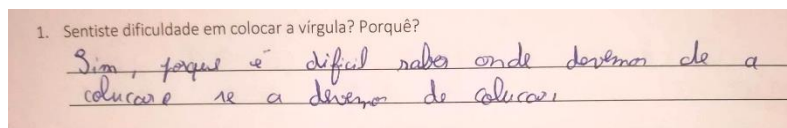 1. Sentiste dificuldade em colocar a vírgula? Porquê?
Sim, porque é dificil saber onde devemos de a
colucar e se a devemos de colucar.